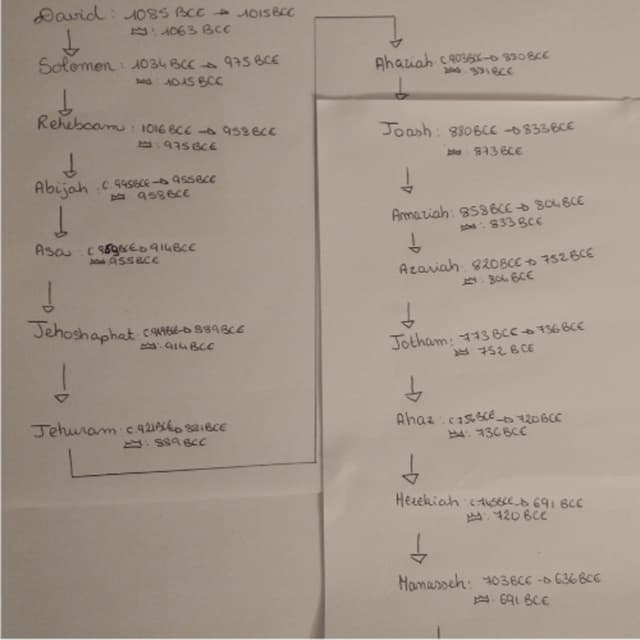 David: 1085 BCE → 1015 BCE
: 1063 BCE
Solomen: 1034 BCE → 975 BCE
: 1015 BCE
Rehoboam: 1016 BCE → 958 BCE
: 975 BCE
Abijah: c. 995BCE → 955BCE
958 BCE
Asa: c BCE → 914BCE
: 955BCE
Jehoshaphat: c BCE → 889BCE
: 914 BCE
Jehuram: c. 921BCE → 881BCE
: 889 BCE
Ahaziah: c 903BCE → 880BCE
: 881BCE
Joash: 880BCE → 833BCE
: 873 BCE
Amaziah: 858 BCE → 804 BCE
: 833 BCE
Azariah: 820BCE → 752 BCE
: 804 BCE
Jotham: 773 BCE → 736BCE
: 752 BCE
Ahaz: c. 756BCE → 720BCE
: 736 BCE
Hezekiah: c 745BCE → 691 BCE
: 720 BCE
Manasseh: 703BCE → 636BCE
: 691 BCE